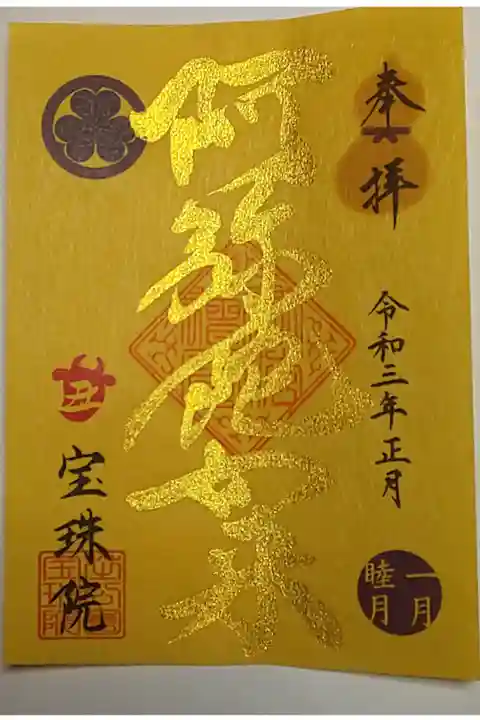 奉拝
令和三年正月
一月
睦月
阿弥陀如来
丑
宝珠院